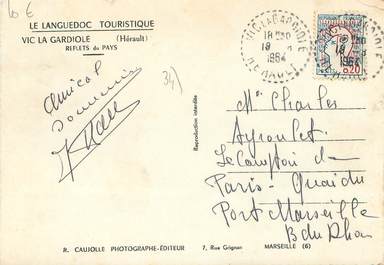 10 €
LE LANGUEDOC TOURISTIQUE
VIC LA GARDIOLE (Hérault)
REFLETS du PAYS
Amical
Souvenir
34)
Reproduction interdite
18 H30
19
1964
HERAULT
0,20
Mr Charles
Ayroulet
Le Comptoir de
Paris - Quai du
Port Marseille
B du Rhône
R. CAUJOLLE PHOTOGRAPHE-ÉDITEUR 7, Rue Grignan MARSEILLE (6)